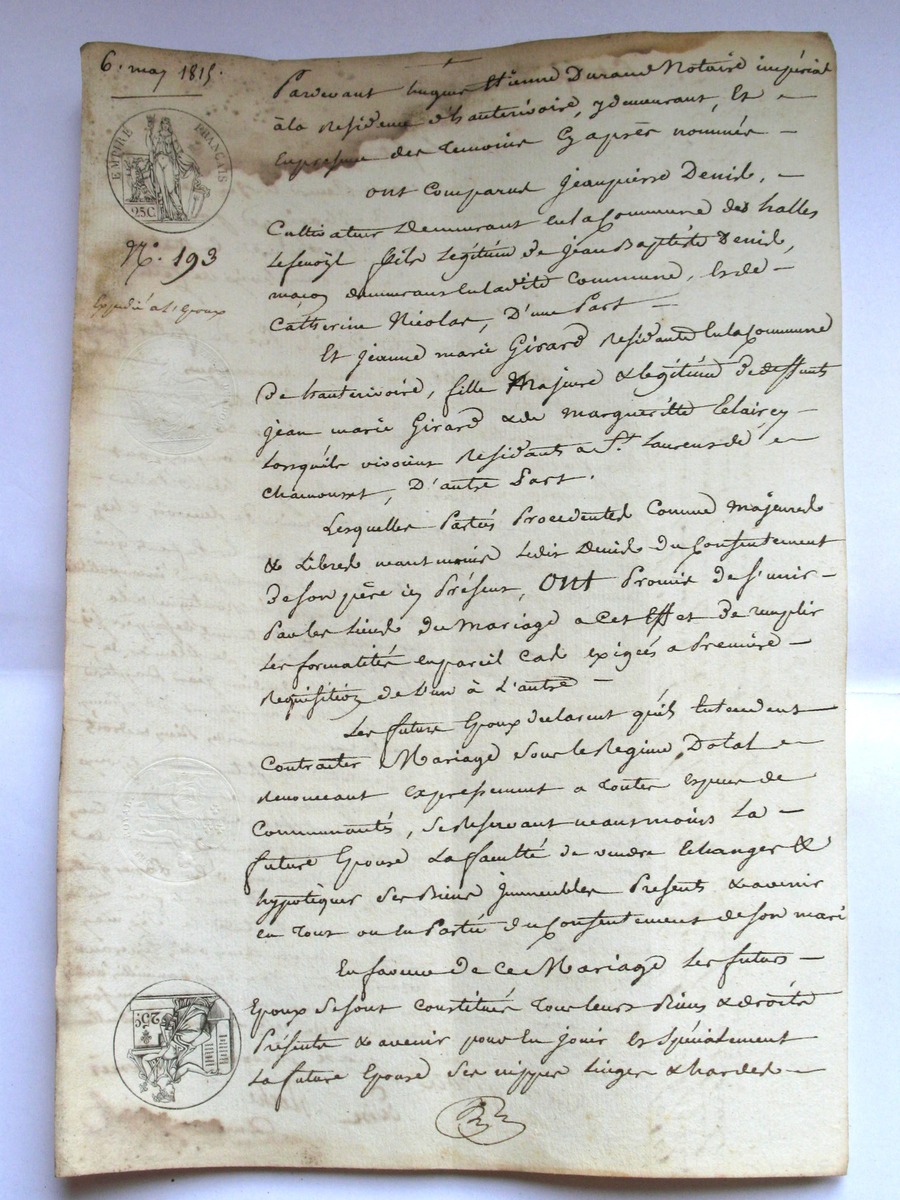 6. may 1815.
EMPIRE FRANÇAIS
25C
N°. 193
Expédié at. Epoux
Pardevant hugues Etienne Durand Notaire impérial
à la Residence d'hauterivoire, y demeurant, Et
En présence des Temoins Cy après nommés
ont Comparus Jeanpierre Denis,
Cultivateur Demeurant En la Commune des halles
Lefenoÿl fils Légitime de Jean Baptiste Denis,
maçon demeurant En ladite Commune, Et de
Catherine Nicolas, D'une Part
Et jeanne marie Girard Residante En la Commune
De hauterivoire, fille Majeure & légitime de deffunts
jean marie Girard & de margueritte
Lesquels vivoient Residants a St. Laurens de
Chamousset, D'autre Part.
Lesquelles Parties Procedantes Comme majeures
& Libres neantmoins Ledit Denis du Consentement
De son père icy Présent, Ont Promis de S'unir
Par les Liens du Mariage a Cet Effet de remplir
Les formalités en pareil Cas exigées a Premiere
Requisition de L'un à L'autre
Les future Epoux declarent qu'ils Entendent
Contracter Mariage Sous le Regime Dotal
Renonceant Expressement a Toutes Espece de
Communauté, se Reservant neantmoins La
future Epouse La faculté de vendre Echanger &
hypotéquer Ses Biens jmmeubles Présents & avenir
en Tout ou En Partie du Consentement de son mari
En faveur de ce Mariage Les futurs
Epoux Se sont Constitués Tous leurs Biens & droits
Présents & avenir pour En jouir Et Spécialement
La future Epouse Ses nippes Linges & hardes
25C